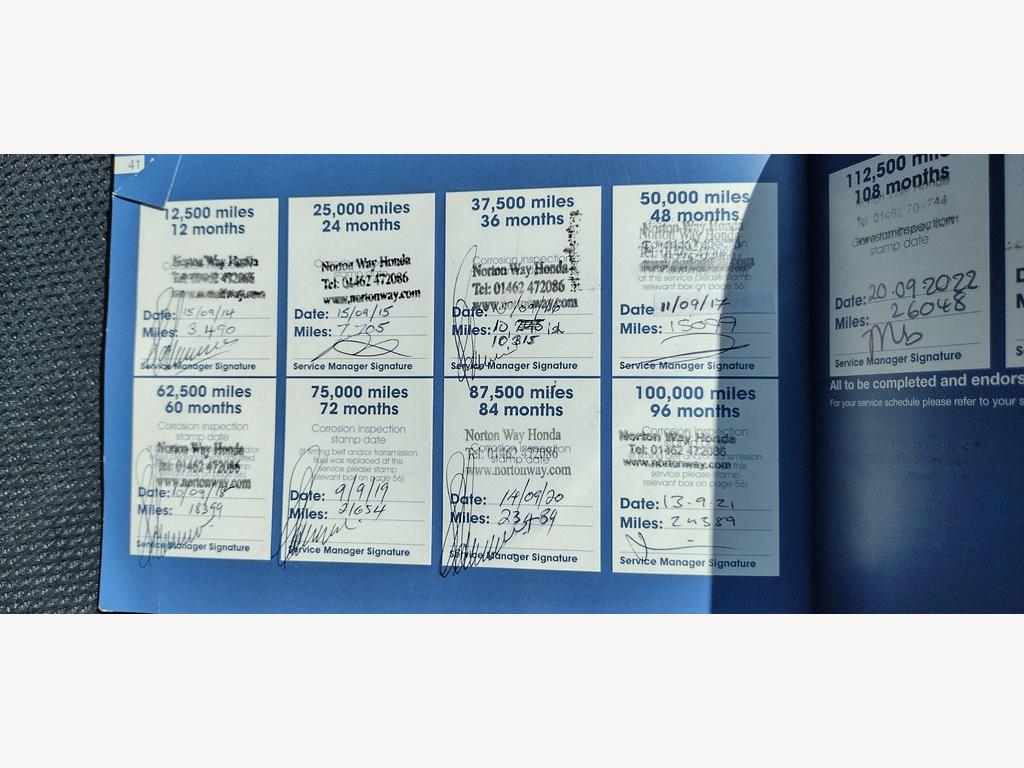 41
12,500 miles
12 months
Norton Way Honda
Tel: 01462 472086
www.nortonway.com
Date: 15/09/14
Miles: 3,490
Service Manager Signature
25,000 miles
24 months
Norton Way Honda
Tel: 01462 472086
www.nortonway.com
Date: 15/09/15
Miles: 7,205
Service Manager Signature
37,500 miles
36 months
Corrosion inspection
Norton Way Honda
Tel: 01462 472086
www.nortonway.com
Date:
Miles: 10,
10,315
Service Manager Signature
50,000 miles
48 months
Norton Way Honda
Date: 11/09/17
Miles:
Service Manager Signature
62,500 miles
60 months
Corrosion inspection
stamp date
Norton Way Honda
Tel: 01462 472086
www.nortonway.com
Date: 10/09/18
Miles: 18399
Service Manager Signature
75,000 miles
72 months
Corrosion inspection
stamp date
(If timing belt and/or transmission
fluid was replaced at this
service please stamp
relevant box on page 56)
Date: 9/9/19
Miles: 21654
Service Manager Signature
87,500 miles
84 months
Norton Way Honda
Corrosion inspection
Tel: 01462 472086
stamp date
www.nortonway.com
Date: 14/09/20
Miles:
Service Manager Signature
100,000 miles
96 months
Norton Way Honda
Tel: 01462 472086
www.nortonway.com
service please stamp
relevant box on page 56)
Date: 13.9.21
Miles: 24389
Service Manager Signature
112,500 miles
108 months
stamp date
Date: 20.09.2022
Miles: 26048
Service Manager Signature
All to be completed and endors
For your service schedule please refer to your s